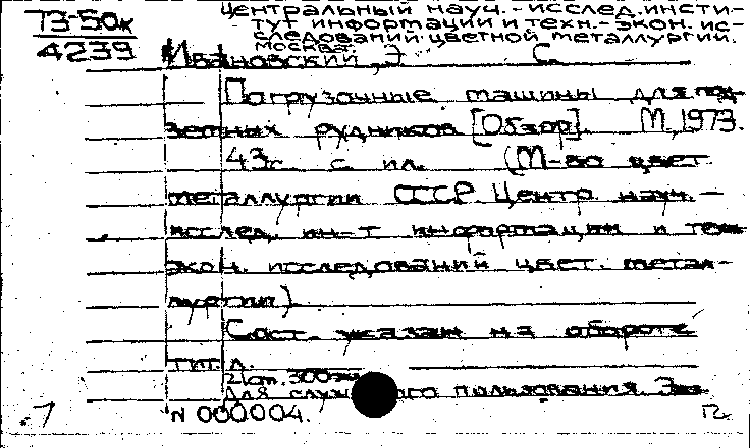 Т3-50к
4239
Центральный науч.-исслед. инсти-
тут информации и техн.-экон. ис-
следований цветной металлургии.
Москва.
Ивановский, Э. С.
Погрузочные машины для под-
земных рудников [Обзор]. М., 1973.
43 с. с ил. (М-во цвет.
металлургии СССР. Центр. науч.-
исслед. ин-т информации и техн.
экон. исследований цвет. метал-
лургии)
Сост. указан на обороте
тит. л.
300 экз.
Для служебного пользования. Экз.
N 000004.